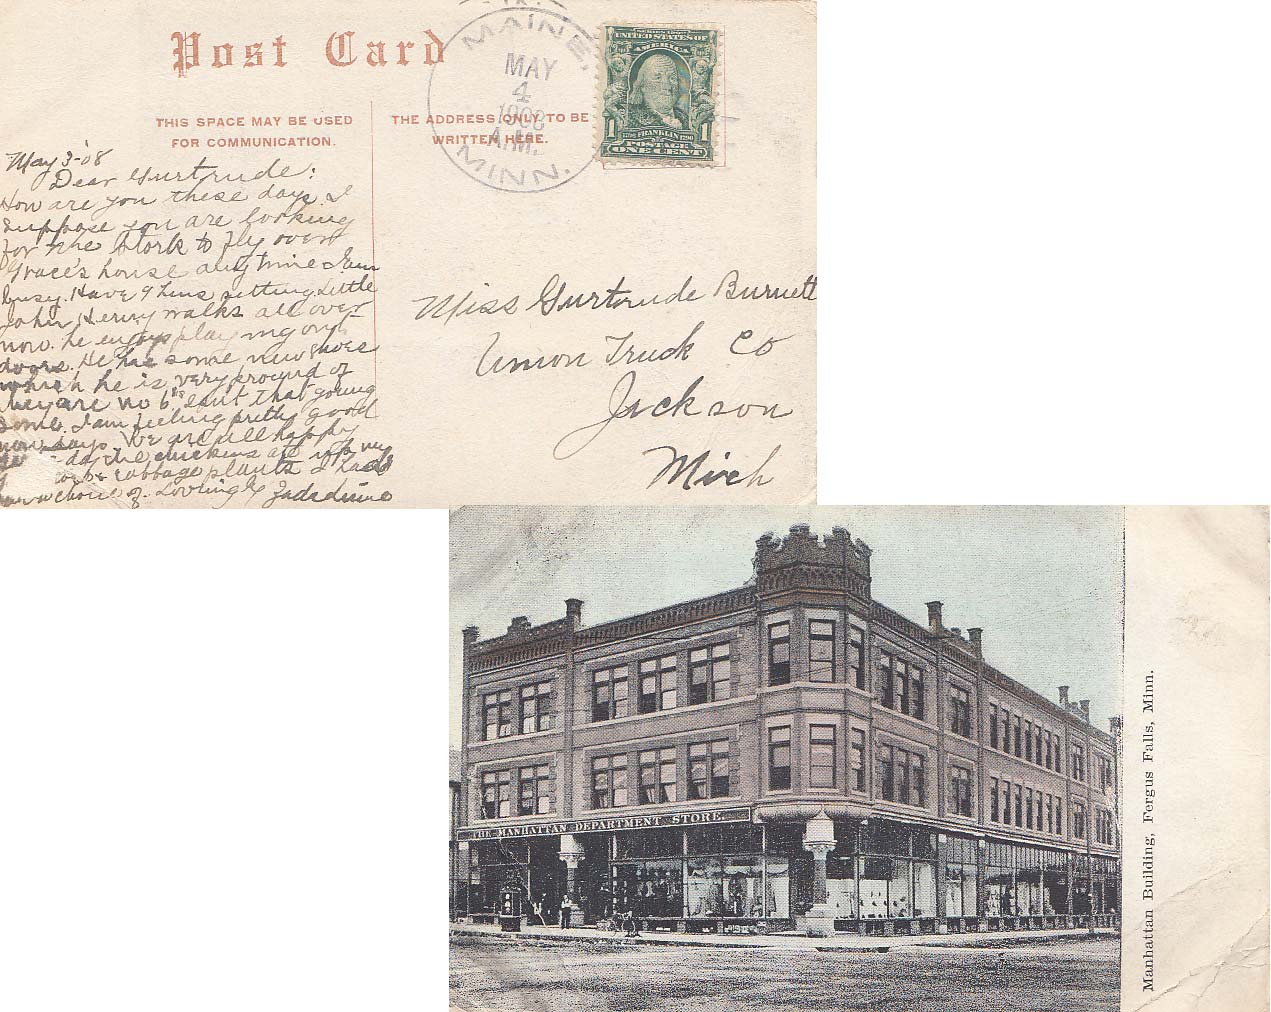 Post Card
THIS SPACE MAY BE USED
FOR COMMUNICATION.
THE ADDRESS ONLY TO BE
WRITTEN HERE.
MAINE,
MAY
4
1908
A.M.
MINN.
SERIES 1902
UNITED STATES OF
AMERICA
1 FRANKLIN 1
1706 1790
POSTAGE
ONE CENT
May 3-'08
Dear Gurtrude:
How are you these days. I
suppose you are looking
for the stork to fly over
Grace's house anytime I am
busy. Have 9 hens setting Little
John Henry walks all over
now. he enjoys play ing out
doors. He has some new shoes
which he is very pround of
they are no 6's isn't that going
some. I am feeling pretty good
now days. We are all happy
day the chickens ate up my
cabbage plants I had
choice of. Lovingly
Miss Gurtrude Burnett
Union Truck Co
Jackson
Mich
THE MANHATTAN DEPARTMENT STORE.
Manhattan Building, Fergus Falls, Minn.